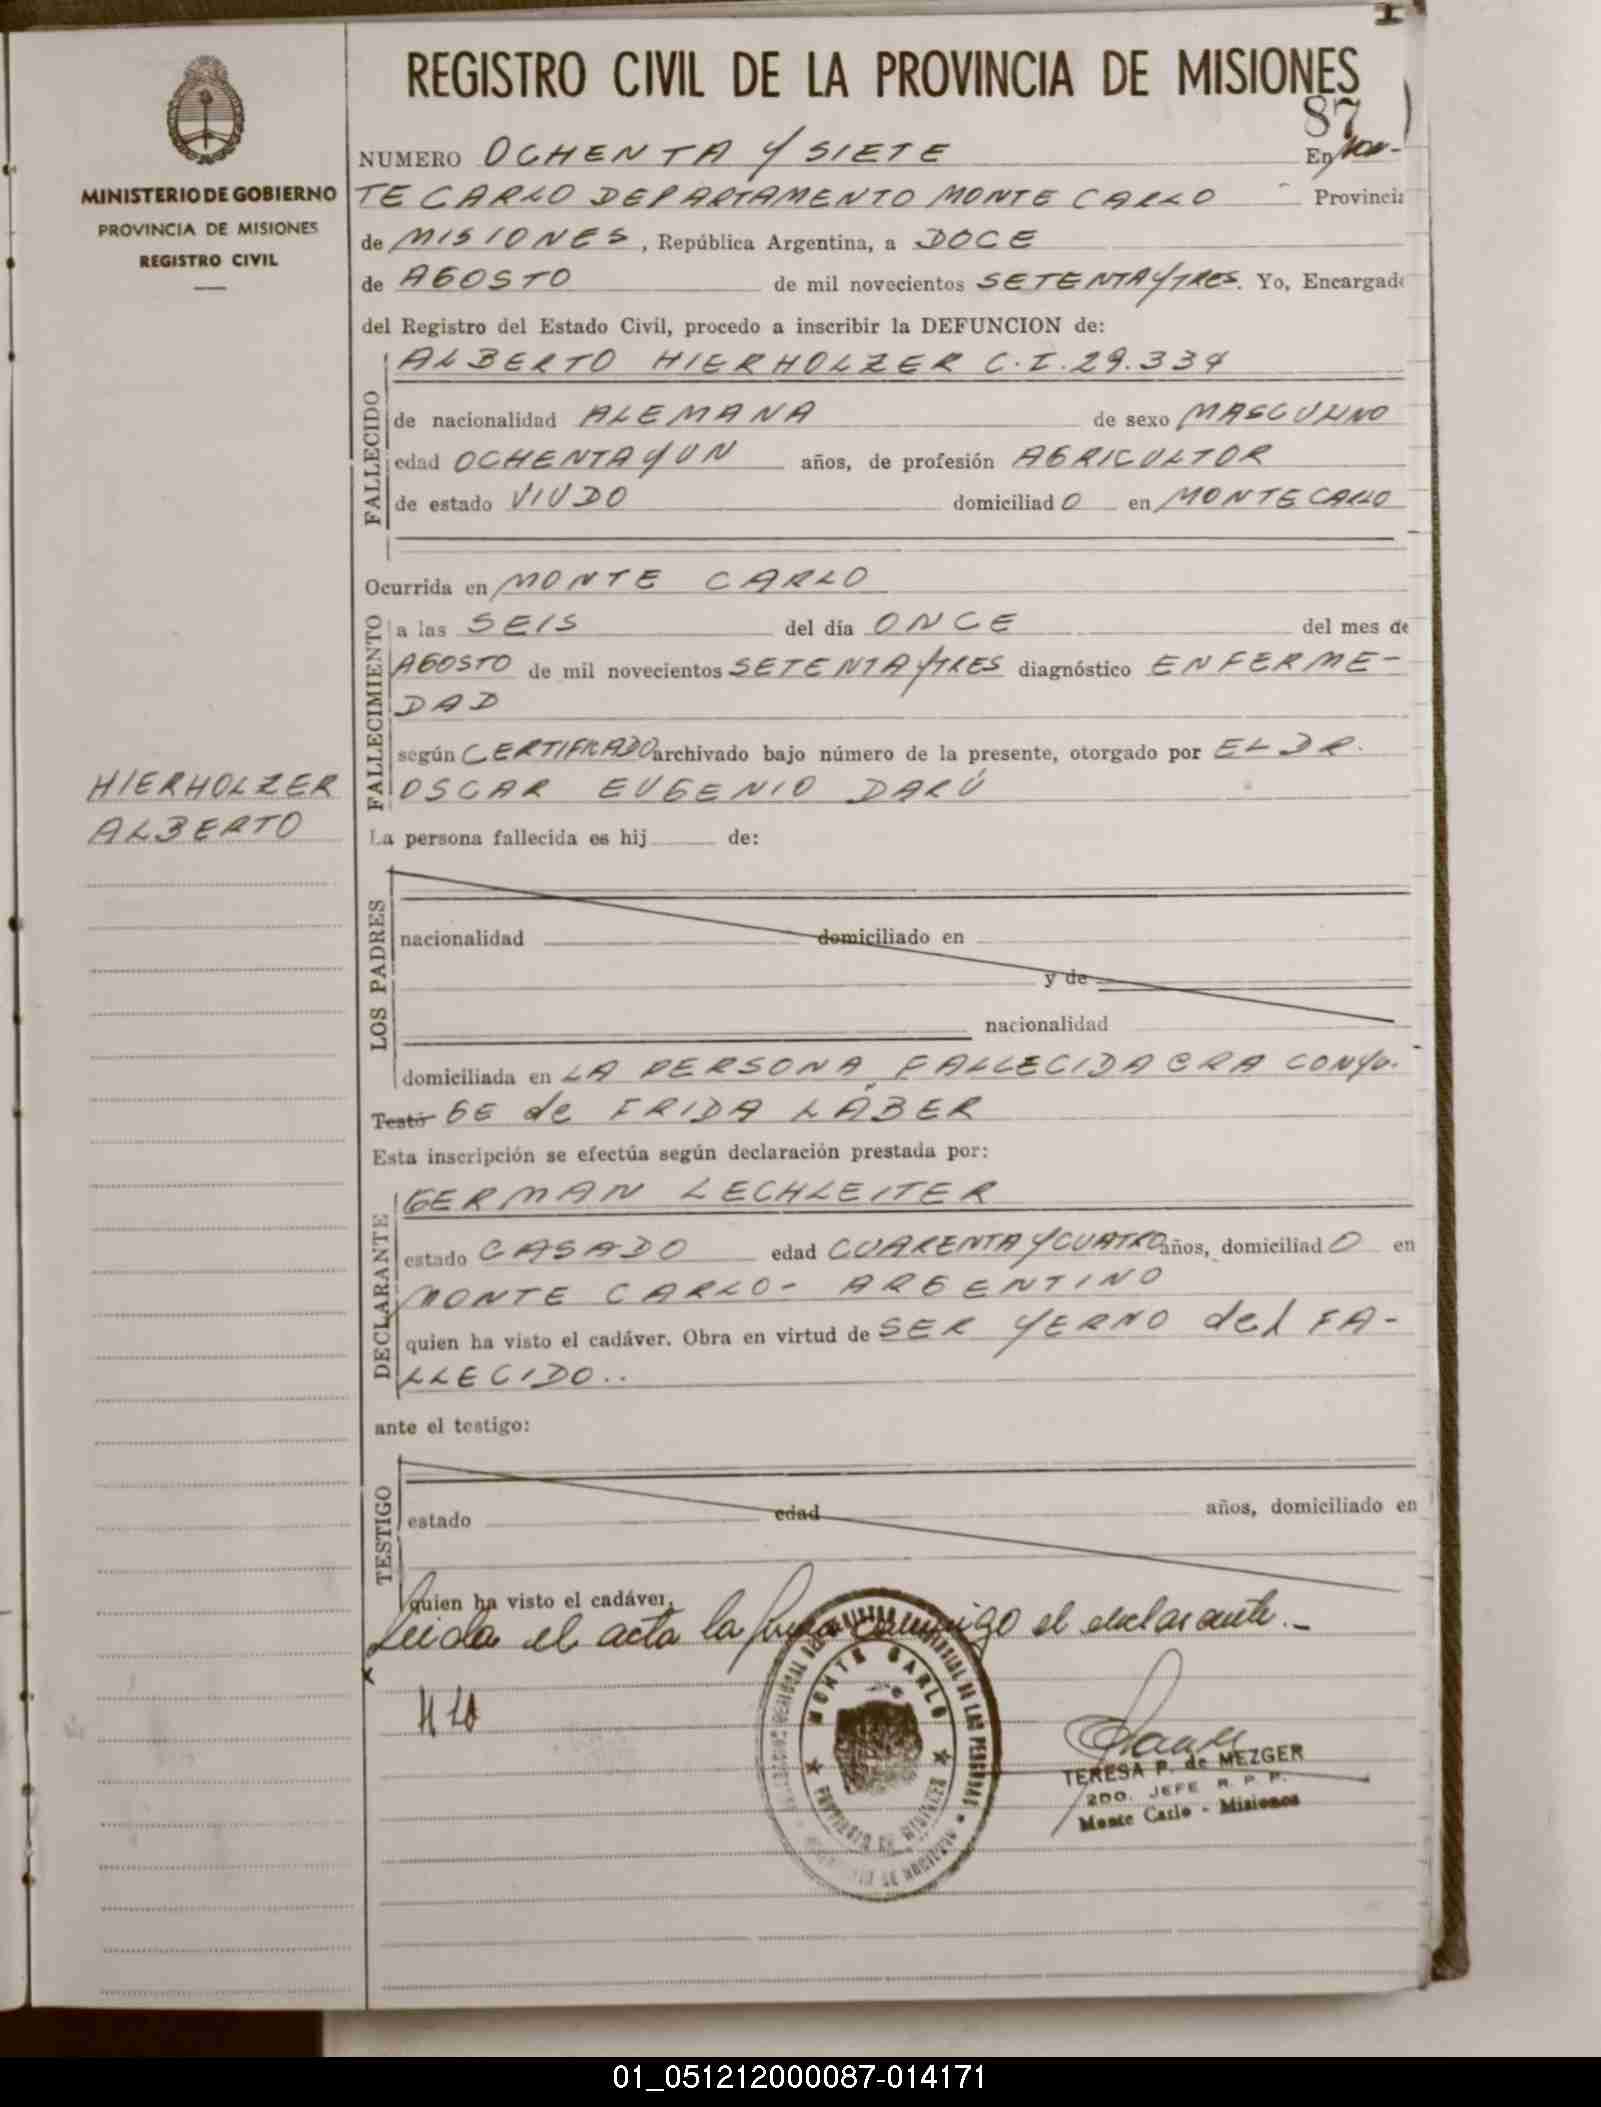 REGISTRO CIVIL DE LA PROVINCIA DE MISIONES
87
MINISTERIO DE GOBIERNO
PROVINCIA DE MISIONES
REGISTRO CIVIL
HIERHOLZER
ALBERTO
NUMERO OCHENTA Y SIETE En MON-
TE CARLO DEPARTAMENTO MONTE CARLO Provincia
de MISIONES, República Argentina, a DOCE
de AGOSTO de mil novecientos SETENTA Y TRES. Yo, Encargado
del Registro del Estado Civil, procedo a inscribir la DEFUNCION de:
FALLECIDO
ALBERTO HIERHOLZER C.I. 29.334
de nacionalidad ALEMANA de sexo MASCULINO
edad OCHENTA Y UN años, de profesión AGRICULTOR
de estado VIUDO domiciliado en MONTE CARLO
Ocurrida en MONTE CARLO
FALLECIMIENTO
a las SEIS del día ONCE del mes de
AGOSTO de mil novecientos SETENTA Y TRES diagnóstico ENFERME-
DAD
según CERTIFICADO archivado bajo número de la presente, otorgado por EL DR.
OSCAR EUGENIO DARÚ
La persona fallecida es hij de:
LOS PADRES
nacionalidad domiciliado en
y de
nacionalidad
domiciliada en LA PERSONA FALLECIDA ERA CONYU-
Testó GE de FRIDA LÄBER
Esta inscripción se efectúa según declaración prestada por:
DECLARANTE
GERMAN LECHLEITER
estado CASADO edad CUARENTA Y CUATRO años, domiciliado en
MONTE CARLO- ARGENTINO
quien ha visto el cadáver. Obra en virtud de SER YERNO del FA-
LLECIDO..
ante el testigo:
TESTIGO
estado edad años, domiciliado en
quien ha visto el cadáver.
Leida el acta la firma conmigo el declarante.-
MONTE CARLO
PROVINCIA DE MISIONES
TERESA P. de MEZGER
2DO. JEFE R. P. P.
Monte Carlo - Misiones
01_051212000087-014171